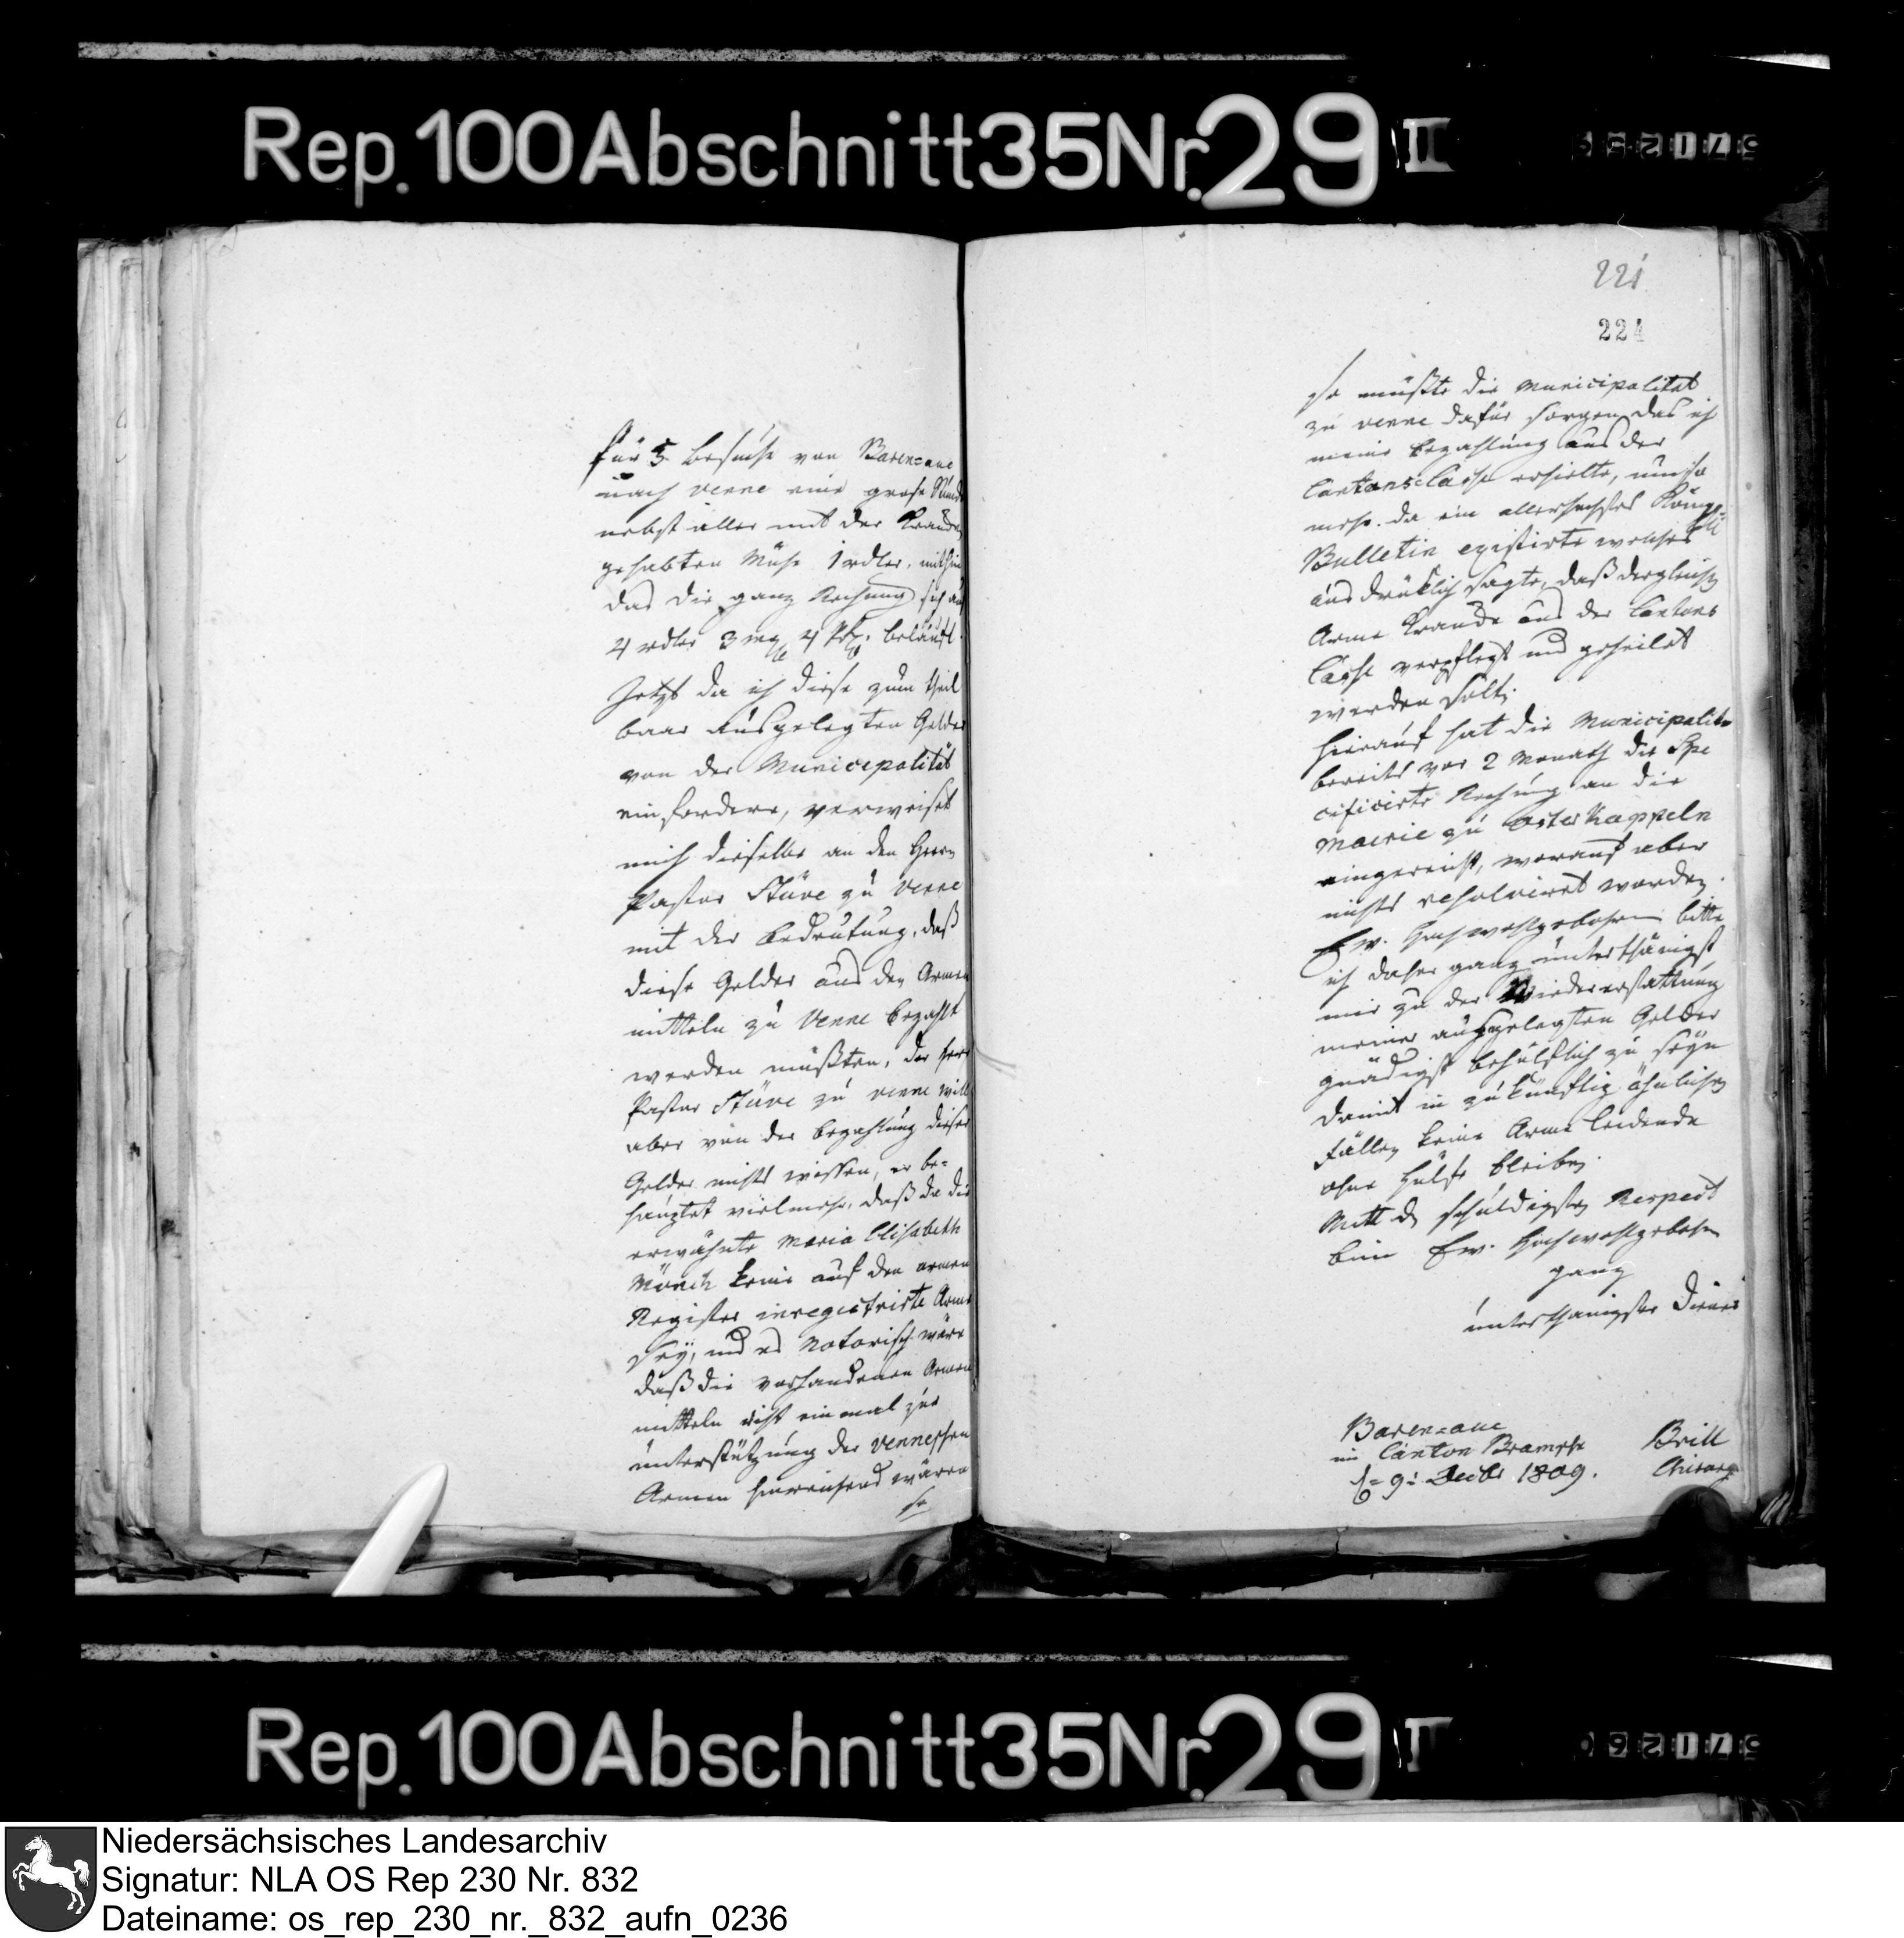 Rep. 100 Abschnitt 35 Nr. 29 II
für 5 Besuche von Barenaue
nach Venne eine große Stunde
nebst aller mit der Kranken
gehabten Mühe 1 rdler, mithin
das die ganz Rechnung sich auf
4 rdler 3 mg 4 Pf. beläuft.
Jetzt da ich diese zum theil
baar ausgelegten Gelder
von der Municipalität
einfordere, verweiset
mich dieselbe an den Herrn
Pastor Stüve zu Venne
mit der Bedeutung, daß
diese Gelder aus den Armen
mitteln zu Venne bezahlt
werden müßten, der Herr
Pastor Stüve zu Venne will
aber von der Bezahlung dieser
Gelder nichts wissen, er be=
hauptet vielmehr, daß da die
erwähnte Maria Elisabeth
Mönch keine auf den armen
Register inregistrirte Arme
sey, und es Notorisch wäre
daß die vorhandenen Armen
mitteln nicht einmal zur
unterstützung der Venneschen
Armen hinreichend wären
so
221
224
so müßte die Municipalitat
zu Venne dafür sorgen das ich
meine Bezahlung aus der
Cantons=Casse erhielte, umso
mehr da ein allerhöchstes Königl.
Bulletin existirte welches
ausdrüklich sagte, daß dergleichen
Arme Kranke aus der Cantons
Casse verpflegt und geheilet
werden solte.
Hierauf hat die Municipalität
bereits vor 2 Monath die Spe
cificirte Rechnung an die
Mairie zu Osterkappeln
eingereicht, worauf aber
nichts resolviret worden.
Ew. Hochwohlgebohren bitte
ich daher ganz unterthänigst
mir zu der Wiedererstattung
meiner ausgelegten Gelder
gnädigst behülflich zu seyn
damit in zukünftig ähnlichen
Fällen keine Arme leidende
ohne Hülfe bleiben.
Mitt den schuldigsten Respect
bin Ew. Hochwohlgebohren
ganz
unterthanigster Diener
Baren=aue
im Canton Bramsche
d= 9: Decbr 1809.
Brill
Chirurg
Rep. 100 Abschnitt 35 Nr. 29 II
Niedersächsisches Landesarchiv
Signatur: NLA OS Rep 230 Nr. 832
Dateiname: os_rep_230_nr._832_aufn_0236